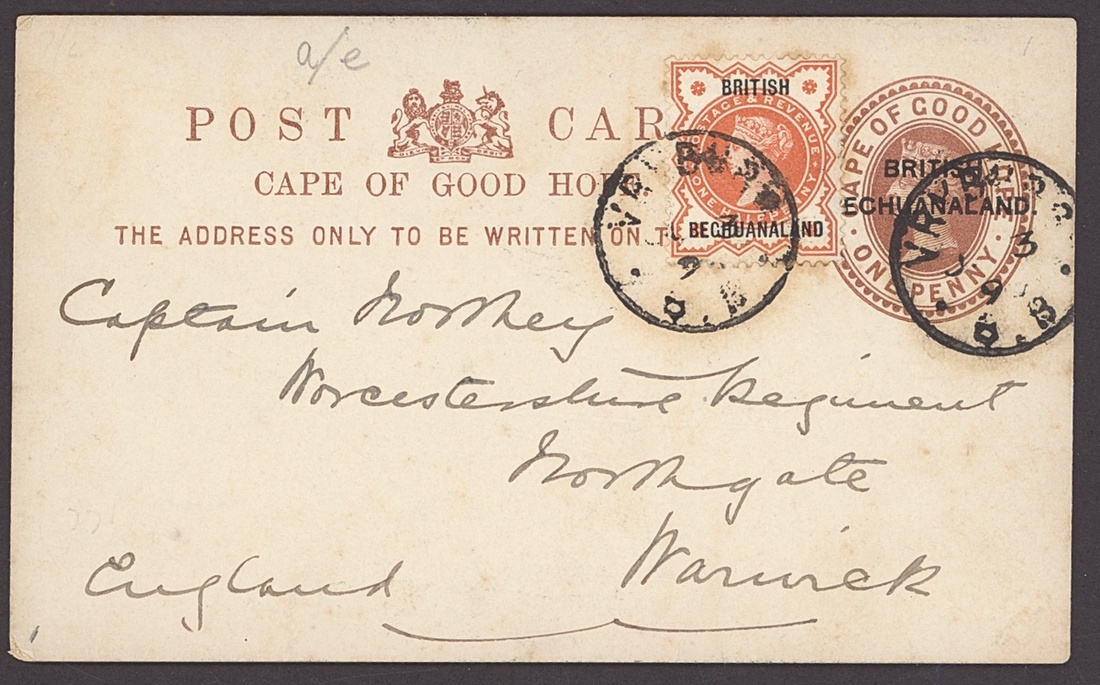 a/e
POST CAR
CAPE OF GOOD HOPE
THE ADDRESS ONLY TO BE WRITTEN ON T
BRITISH
POSTAGE & REVENUE
ONE HALFPENNY
BECHUANALAND
CAPE OF GOOD HOPE
BRITISH
BECHUANALAND
ONE PENNY
VRYBURG
3
9
B.B
VRYBURG
J 3
9
B.B
Captain Northey
Worcestershire Regiment
Northgate
Warwick
England